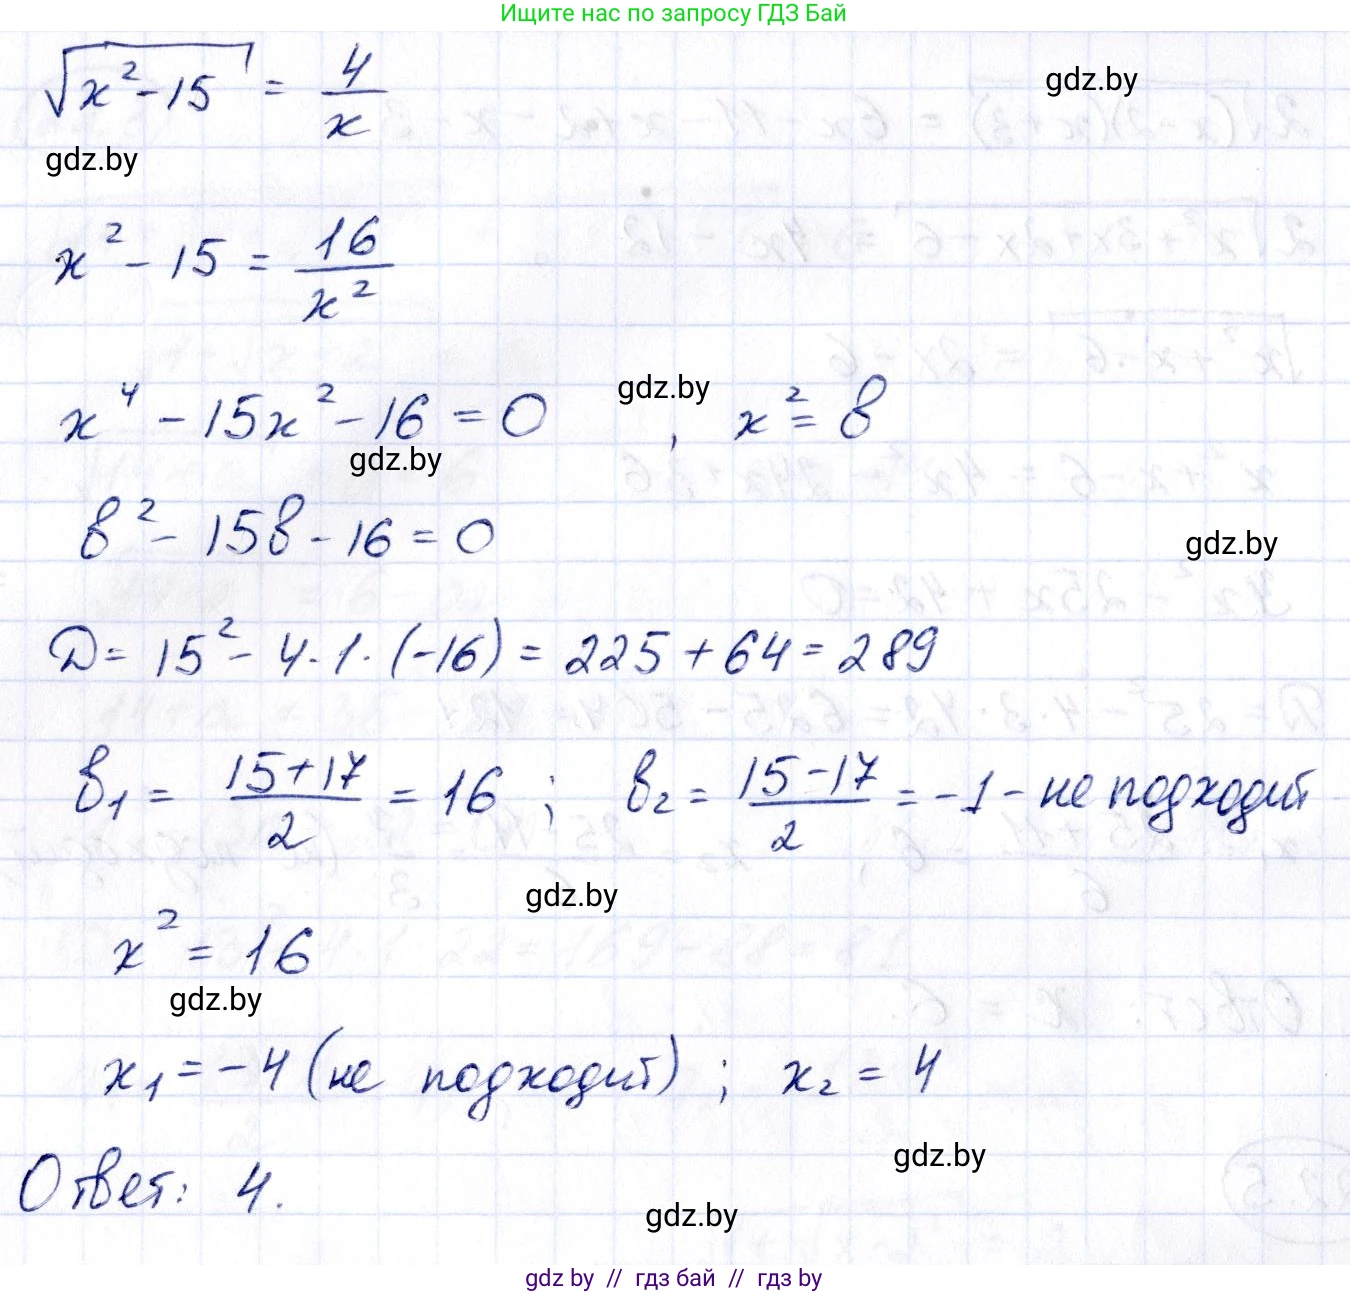 Ищите нас по запросу ГДЗ Бай
√(x² - 15) = 4/x
gdz.by
gdz.by
x² - 15 = 16/x²
x⁴ - 15x² - 16 = 0 , x² = в
gdz.by
gdz.by
в² - 15в - 16 = 0
gdz.by
D = 15² - 4 · 1 · (-16) = 225 + 64 = 289
в₁ = (15+17)/2 = 16 ; в₂ = (15-17)/2 = -1 - не подходит
gdz.by
x² = 16
gdz.by
x₁ = -4 (не подходит) ; x₂ = 4
gdz.by
Ответ: 4.
gdz.by
gdz by // гдз бай // гдз by